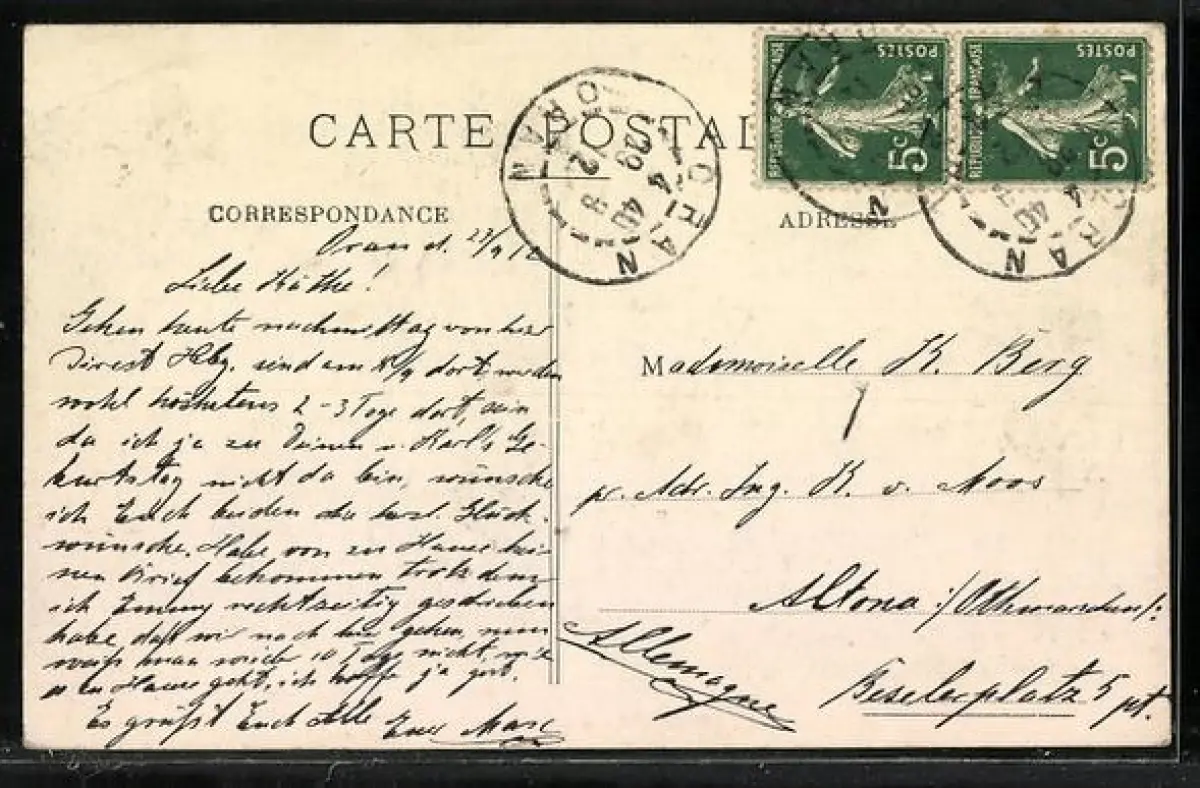 CARTE POSTAL
CORRESPONDANCE
ADRESSE
POSTES
RÉPUBLIQUE FRANÇAISE
5c
POSTES
RÉPUBLIQUE FRANÇAISE
5c
ORAN
ORAN
ORAN
Oran d. 23/9 12
Liebe Käthe!
Gehen heute nachmittag von hier
direct Hbg. sind am /9 dort, werden
wohl höchstens 2-3 Tage dort sein
da ich ja zu Deinem u. Karl's Ge-
burtstag nicht da bin, wünsche
ich Euch beiden die herzl. Glück-
wünsche. Habe von zu Hause kei-
nen Brief bekommen trotzdem
ich Emmy rechtzeitig geschrieben
habe, daß wir nach hier gehen, nun
weiß man wieder 10 Tage nicht, wie
es zu Hause geht, ich hoffe ja gut.
Es grüßt Euch Alle
Euer
Mademoiselle K. Berg
pr. Adr. Ing. K. v. Moos
Altona /Othmarschen/:
Beselerplatz 5 pt.
Allemagne